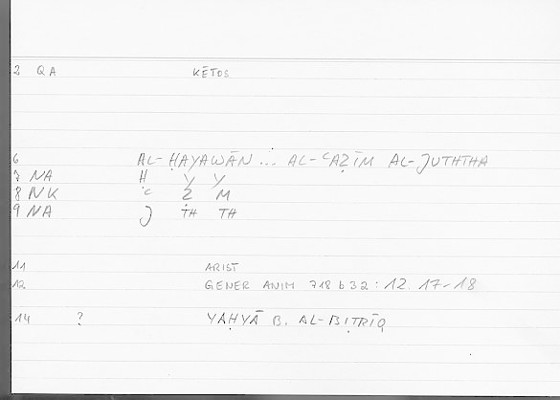 2 QA KĒTOS
6 AL-ḤAYAWĀN ... AL-ʿAẒĪM AL-JUTHTHA
7 NA Ḥ Y Y
8 NK ʿ Ẓ M
9 NA J TH TH
11 ARIST
12 GENER ANIM 718 b 32 : 12. 17-18
14 ? YAḤYĀ B. AL-BIṬRĪQ